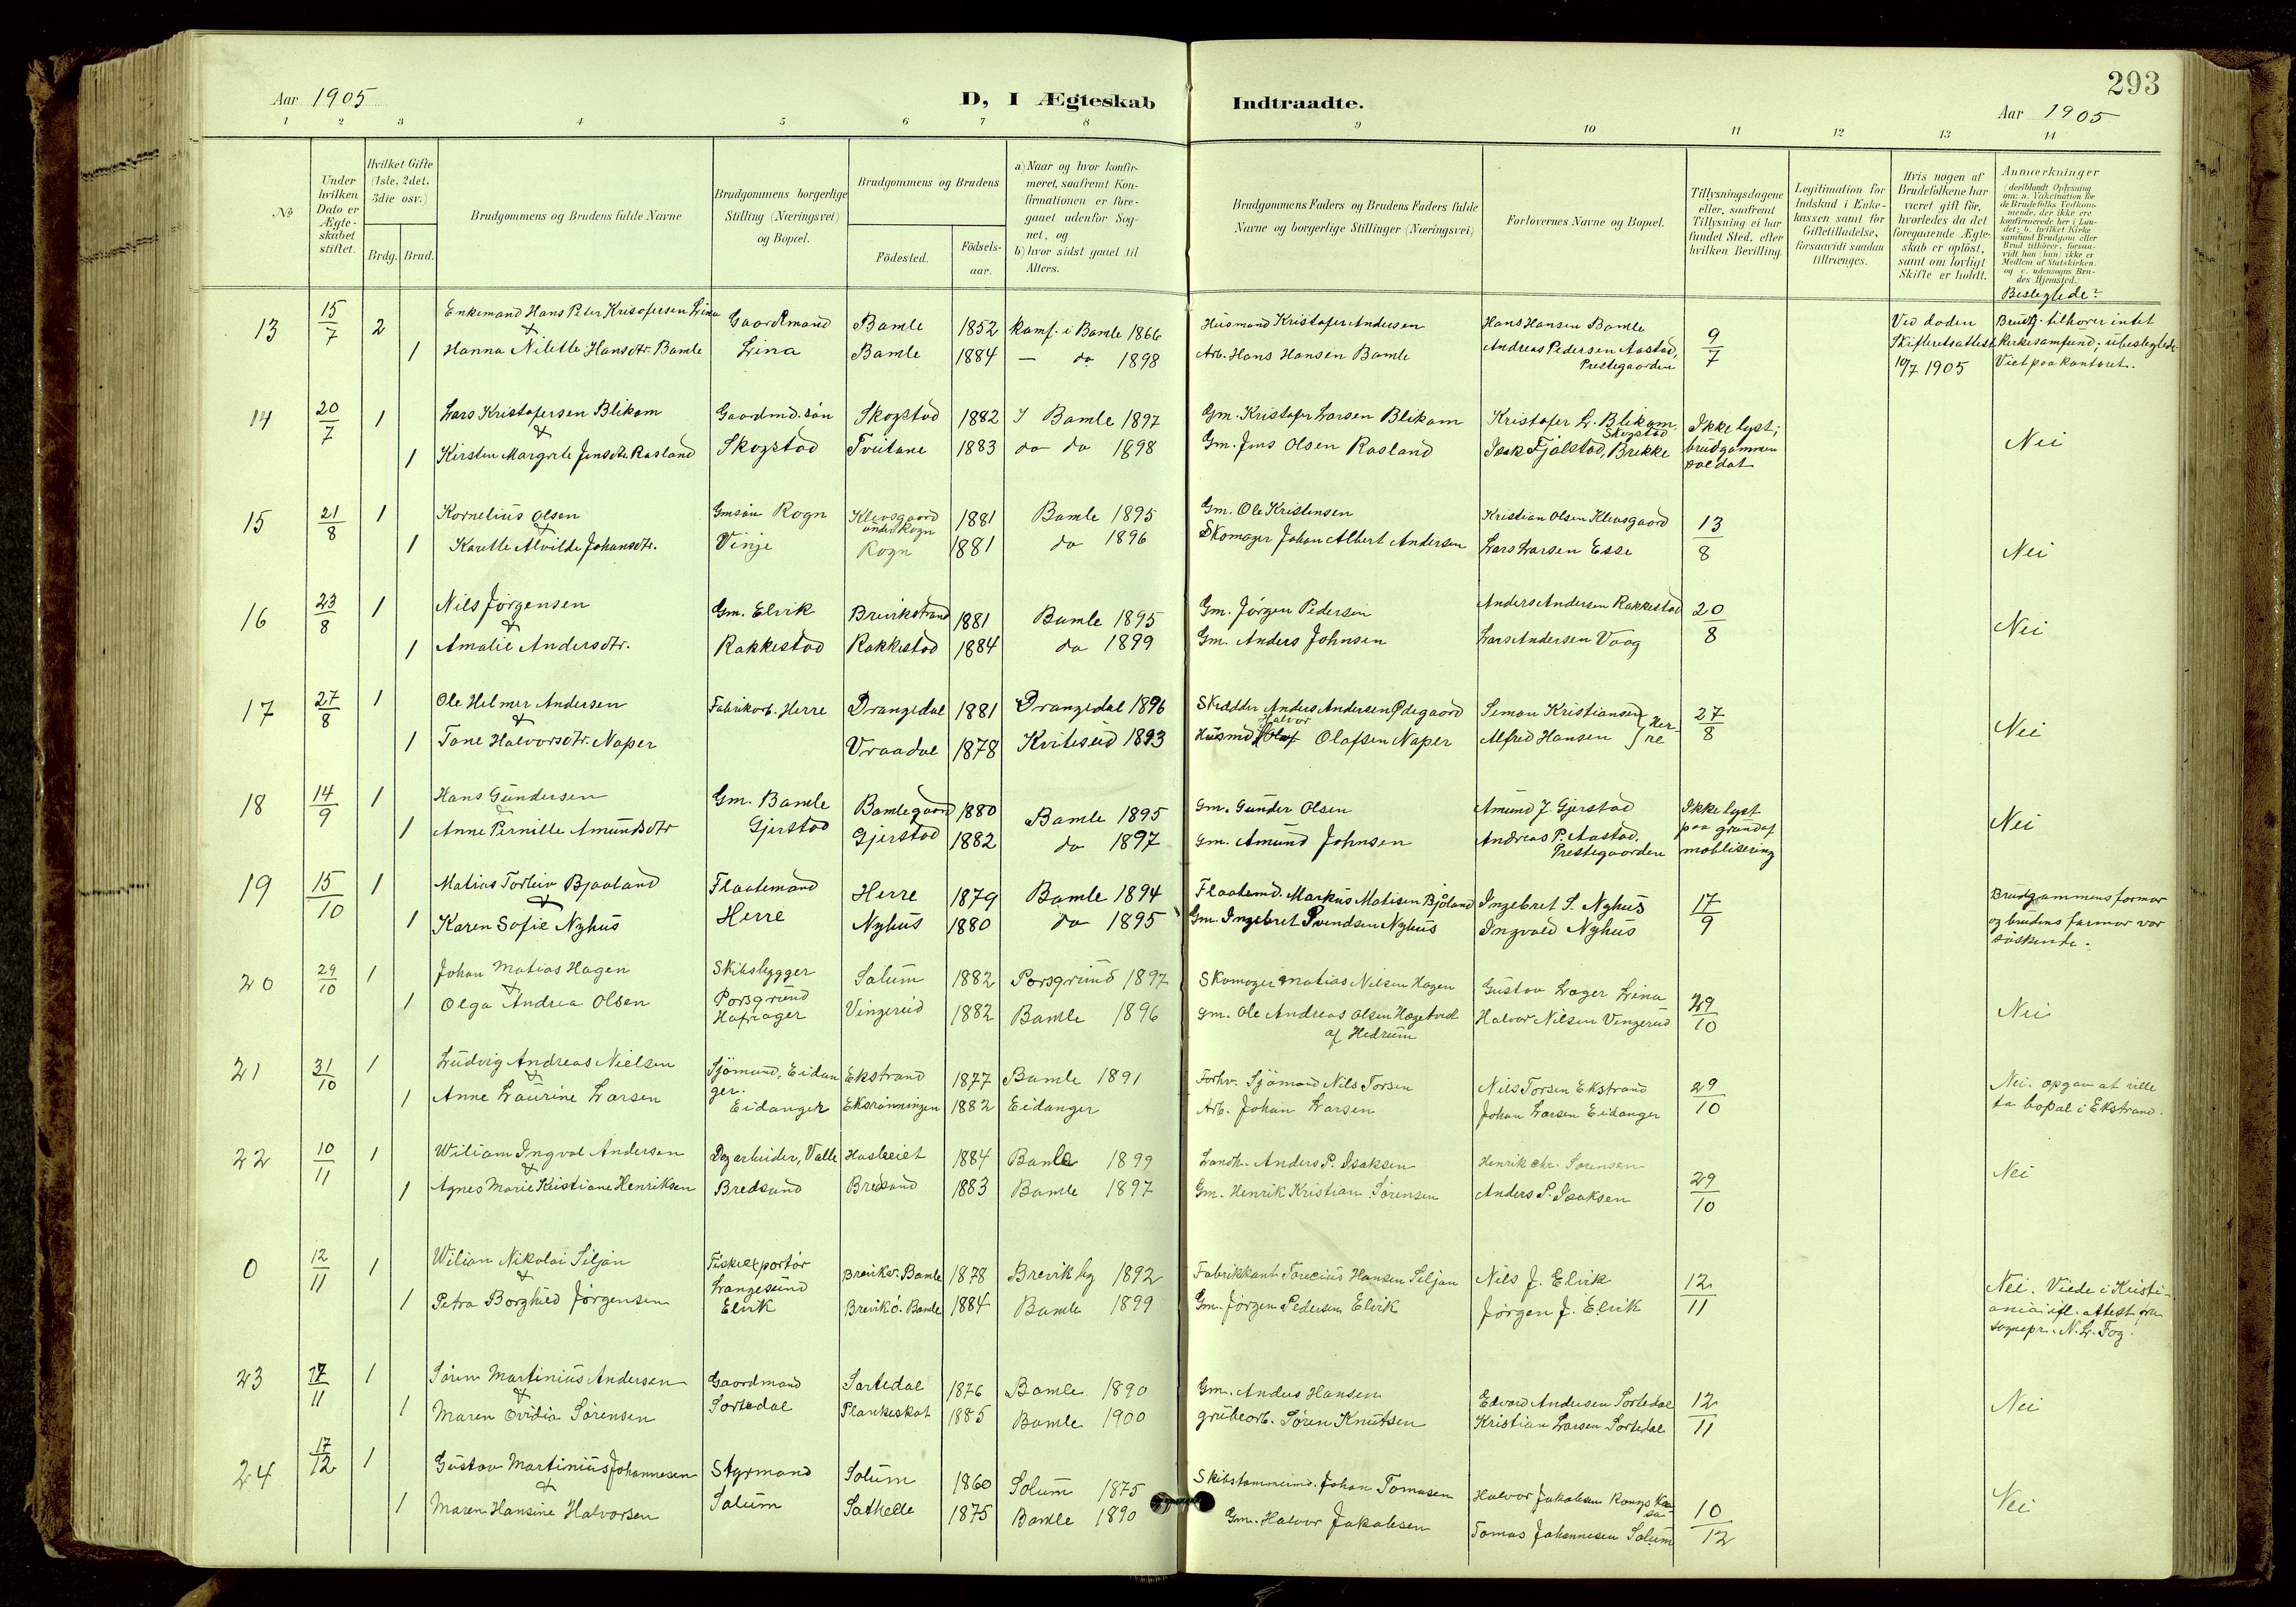 293
Aar 1905
D, I Ægteskab Indtraadte.
Aar 1905
1 2 3 4 5 6 7 8 9 10 11 12 13 14
No
Under hvilken Dato er Ægteskabet stiftet.
Hvilket Gifte (1ste, 2det, 3die osv.)
Brdg. Brud.
Brudgommens og Brudens fulde Navne
Brudgommens borgerlige Stilling (Næringsvei) og Bopæl.
Brudgommens og Brudens
Födested.
Födselsaar.
a) Naar og hvor konfirmeret, saafremt Konfirmationen er foregaaet udenfor Sognet, og
b) hvor sidst gaaet til Alters.
Brudgommens Faders og Brudens Faders fulde Navne og borgerlige Stillinger (Næringsvei)
Forlovernes Navne og Bopæl.
Tillysningsdagene eller, saafremt Tillysning ei har fundet Sted, efter hvilken Bevilling.
Legitimation for Indskud i Enkekassen samt for Giftetilladelse, forsaavidt saadan tiltrænges.
Hvis nogen af Brudefolkene har været gift før, hvorledes da det foregaaende Ægteskab er opløst, samt om lovligt Skifte er holdt.
Anmærkninger (deriblandt Oplysning om: a. Vakcination for de Brudefolks Vedkommende, der ikke ere konfirmerede her i Landet; b. hvilket Kirkesamfund Brudgom eller Brud tilhører, forsaavidt han (hun) ikke er Medlem af Statskirken og c. udensogns Brudes Hjemsted.
Beslegtede?
13 15/7 2 Enkemand Hans Peter Kristofersen Lina Gaardmand Bamle 1852 konf. i Bamle 1866 Husmand Kristofer Andersen Hans Hansen Bamle 9/7 Ved døden Brudg. tilhører intet
& 1 Hanna Nilette Hansdtr. Bamle Lina Bamle 1884 — do 1898 Arb. Hans Hansen Bamle Andreas Pedersen Aastad, Prestegaarden Skifteretsattest 10/7 1905 kirkesamfund; ubeslegtede. Viet paa kontoret.
14 20/7 1 Lars Kristofersen Blikom Gaardmd. søn Skogstad 1882 I Bamle 1897 Gm. Kristofer Larsen Blikom Kristofer L. Blikom, Skogstad Ikke lyst;
& 1 Kirsten Margrete Jensdtr. Rasland Skogstad Tveitane 1883 do do 1898 Gm. Jens Olsen Rasland Isak Fjølstad, Brekke brudgommen soldat Nei
15 21/8 1 Kornelius Olsen Gmsøn Rogn Klevsgaard under Rogn 1881 Bamle 1895 Gm. Ole Kristensen Kristian Olsen Klevsgaard 13/8
& 1 Karette Alvilde Johansdtr. Vinje Rogn 1881 do 1896 Skomager Johan Albert Andersen Lars Larsen Esse Nei
16 23/8 1 Nils Jørgensen Gm. Elvik Brevikstrand 1881 Bamle 1895 Gm. Jørgen Pedersen Anders Andersen Rakkestad 20/8
& 1 Amalie Andersdtr. Rakkestad Rakkestad 1884 do 1899 Gm. Anders Johnsen Lars Andersen Vaag Nei
17 27/8 1 Ole Helmer Andersen Fabrikarb. Herre Drangedal 1881 Drangedal 1896 Skrædder Anders Andersen Ødegaard Simon Kristiansen 27/8
& 1 Tone Halvorsdtr. Naper Vraadal 1878 Kviteseid 1893 Husmd. Halvor Olafsen Naper Alfred Hansen } Herre Nei
18 14/9 1 Hans Gundersen Gm. Bamle Bamlegaard 1880 Bamle 1895 Gm. Gunder Olsen Amund J. Gjerstad Ikke lyst
& 1 Anne Pernille Amundsdtr Gjerstad Gjerstad 1882 do 1897 Gm. Amund Johnsen Andreas P. Aastad. Prestegaarden paa grund af moblisering Nei
19 15/10 1 Matias Torleiv Bjaaland Flaatemand Herre 1879 Bamle 1894 Flaatemd. Markus Matisen Bjåland Ingebret S. Nyhus 17/9 Brudgommens farmor
& 1 Karen Sofie Nyhus Herre Nyhus 1880 do 1895 Gm. Ingebret Svendsen Nyhus Ingvald Nyhus og brudens farmor var søskende.
20 29/10 1 Johan Matias Hagen Skibsbygger Porsgrund Solum 1882 Porsgrund 1897 Skomager Matias Nilsen Hagen Gustav Lager Lina 29/10
& 1 Olga Andrea Olsen Hafsager Vingereid 1882 Bamle 1896 Gm. Ole Andreas Olsen Hagetvedt af Hedrum Halvor Nilsen Vingereid Nei
21 31/10 1 Ludvig Andreas Nielsen Sjømand, Eidanger. Ekstrand 1877 Bamle 1891 Forhv. Sjømand Nils Torsen Nils Torsen Ekstrand 29/10 Nei. opgav at ville
& 1 Anne Laurine Larsen Eidanger Eksrønningen 1882 Eidanger Arb. Johan Larsen Johan Larsen Eidanger ta bopæl i Ekstrand.
22 10/11 1 Wiliam Ingval Andersen Dagarbeider, Valle 1884 Bamle 1899 Landh. Anders P. Isaksen Henrik Chr. Sørensen 29/10
& 1 Agnes Marie Kristiane Henriksen Bredsand Bredsand 1883 Bamle 1897 Gm. Henrik Kristian Sørensen Anders P. Isaksen Nei
0 12/11 1 Wilian Nikolai Siljan Fiskeexportør Langesund Breviks. Bamle 1878 Brevik by 1892 Fabrikkant Torecius Hansen Siljan Nils J. Elvik 12/11 Nei. Viede i Kristi-
& 1 Petra Borghild Jørgensen Elvik Brevikö. Bamle 1884 Bamle 1899 Gm. Jørgen Pedersen Elvik Jørgen J. Elvik ania ifl. attest fra sognepr. N. L. Fog.
23 17/11 1 Søren Martinius Andersen Gaardmand Sortedal 1876 Bamle 1890 Gm. Anders Hansen Edvard Andersen Sortedal 12/11
& 1 Maren Ovidia Sørensen Sortedal Plankeskot 1885 Bamle 1900 grubearb. Søren Knutsen Kristian Larsen Sortedal Nei
24 17/12 1 Gustav Martinius Johannesen Styrmand Solum 1860 Solum 1875 Skibstømmermd. Johan Tomasen Halvor Jakobsen 10/12
& 1 Maren Hansine Halvorsen Solum Sathelle 1875 Bamle 1890 Gm. Halvor Jakobsen Tomas Johannesen Solum Nei